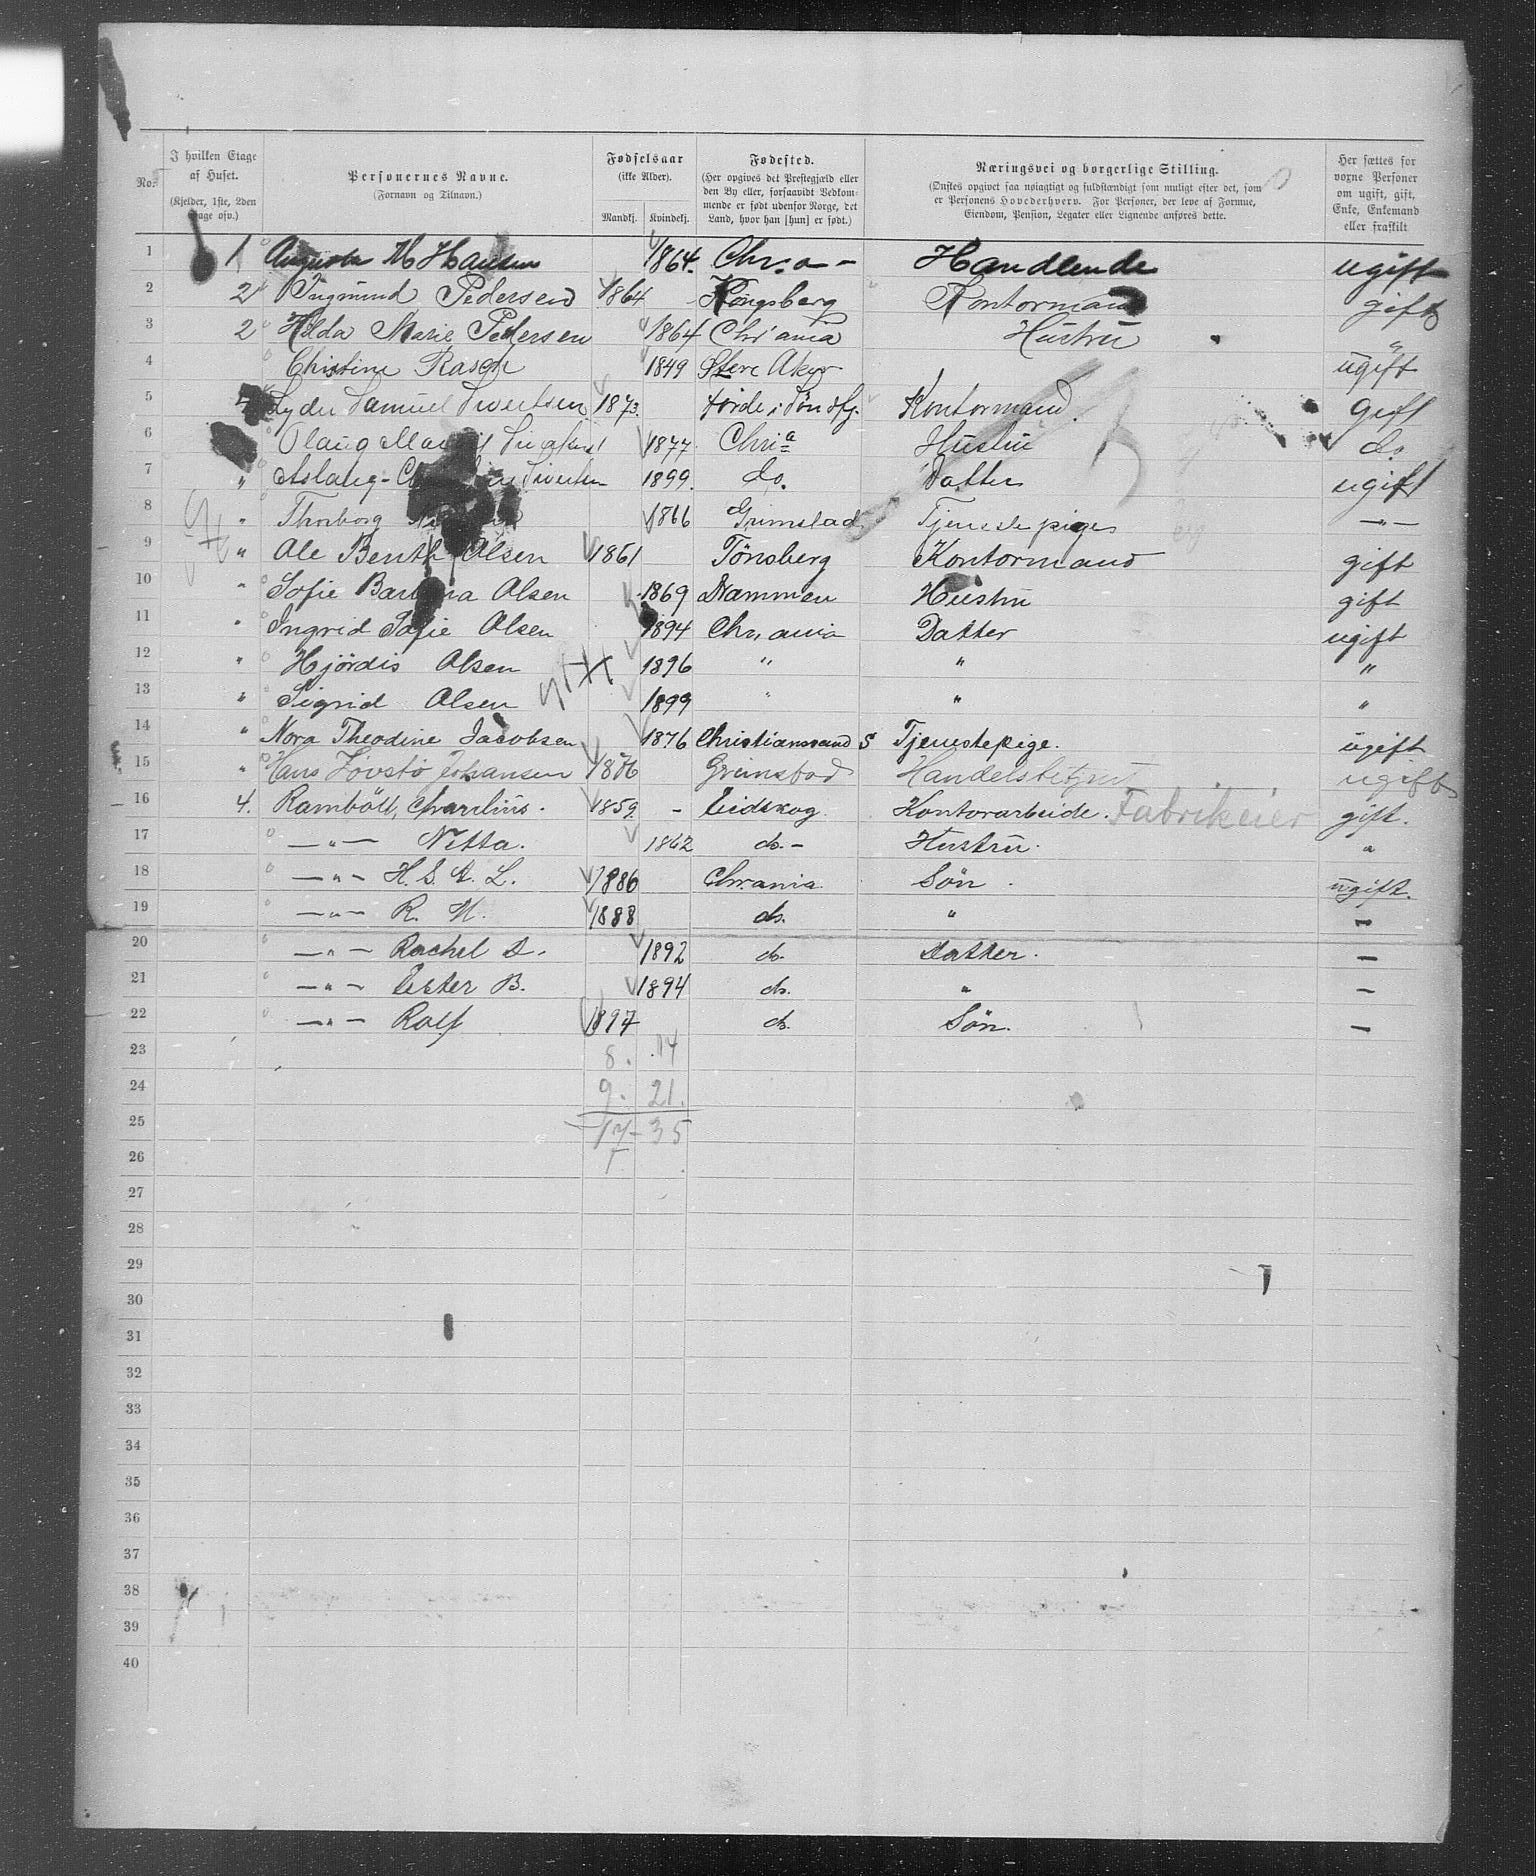 No. | I hvilken Etage af Huset. (Kjelder, 1ste, 2den Etage osv.) | Personernes Navne. (Fornavn og Tilnavn.) | Fødselsaar (ikke Alder). Mandkj. Kvindekj. | Fødested. (Her opgives det Prestegjæld eller den By eller, forsaavidt Vedkommende er født udenfor Norge, det Land, hvor han [hun] er født.) | Næringsvei og borgerlige Stilling. (Ønskes opgivet saa nøiagtigt og fuldstændigt som muligt efter det, som er Personens Hovederhverv. For Personer, der leve af Formue, Eiendom, Pension, Legater eller Lignende anføres dette. | Her sættes for voxne Personer om ugift, gift, Enke, Enkemand eller fraskilt
1 1 Augusta M Hansen 1864. Chr.a- Handlende ugift
2 2 Sigmund Pedersen 1864 - Kongsberg Kontormand gift
3 2 Hilda Marie Pedersen 1864 Chr'ania Hustru "
4 Christine Rasch 1849 Østre Aker ugift
5 Lyder Samuel Sivertsen 1873. Førde i Søndfj. Kontormand. Gift
6 Olaug 1877. Chri a Hustru do
7 " Aslaug- Sivertsen 1899. do. Datter ugift
8 " Thorborg 1866 Grimstad Tjenestepige -"-
9 " Ole Benth Olsen 1861 Tönsberg Kontormand gift
10 " Sofie Barbara Olsen 1869 Drammen Hustru gift
11 " Ingrid Sofie Olsen 1894 Chr, ania Datter ugift
12 " Hjördis Olsen 1896 " " "
13 " Sigrid Olsen 1899 " " "
14 " Nora Theodine Jacobsen 1876 Christianssand S Tjenestepige. ugift
15 " Hans Johansen 1876 Grimstad Handelsbetjent ugift
16 4. Ramböll, Charilius. 1859. - Eidskog. Kontorarbeide. Fabrikeier gift.
17 -"- Netta. 1862 do.- Hustru. "
18 -"- H. S. A. L. 1886 Chr.ania. Sön. ugift.
19 -"- R. M. 1888 do. " -
20 -"- Rachel D. 1892 do. Datter. -
21 -"- Ester B. 1894 do. " -
22 -"- Rolf 1897 do. Sön. -
23 8. 14
24 9. 21.
25 17 - 35
26
27
28
29
30
31
32
33
34
35
36
37
38
39
40